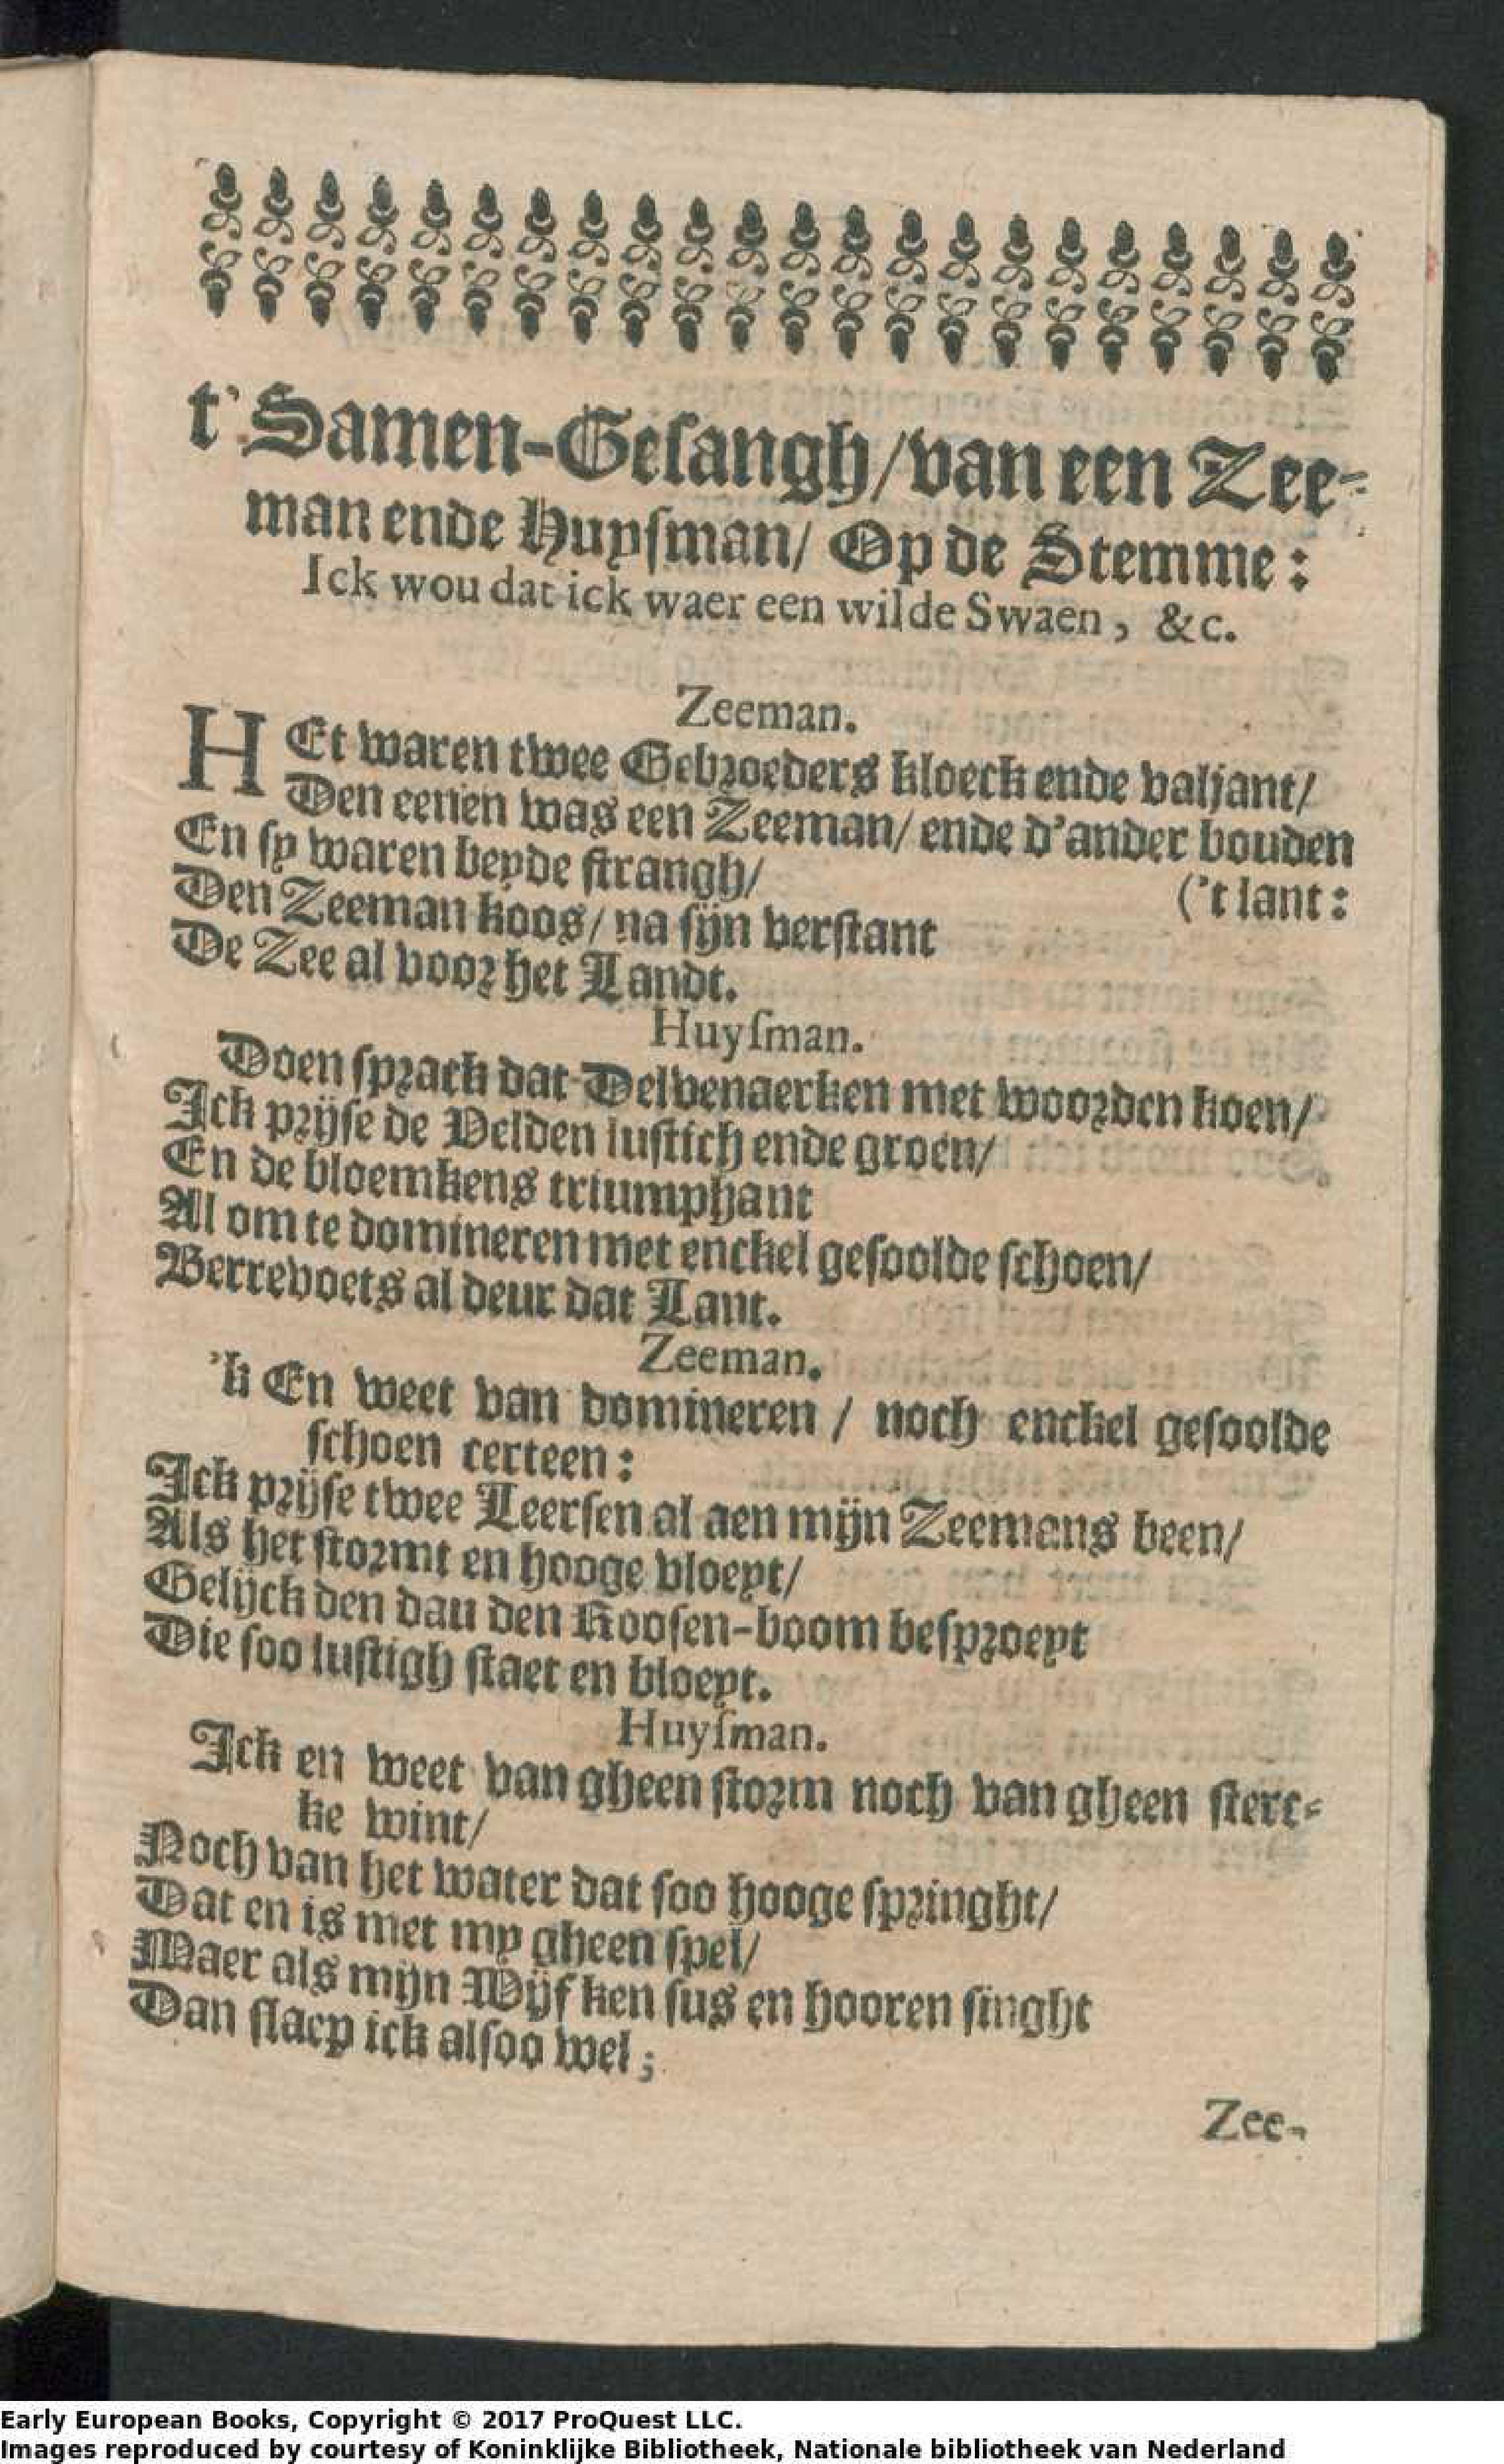 t'Samen-Gesangh/van een Zee-
man ende Huysman/ Op de Stemme:
Ick wou dat ick waer een wilde Swaen, &c.
Zeeman.
HEt waren twee Gebroeders kloeck ende valjant/
Den eenen was een Zeeman/ ende d'ander bouden
('t lant:
En sy waren beyde strangh/
Den Zeeman koos/ na sijn verstant
De Zee al voor het Landt.
Huysman.
Doen sprack dat Delvenaerken met woorden koen/
Ick prijse de Velden lustich ende groen/
En de bloemkens triumphant
Al om te domineren met enckel gesoolde schoen/
Berrevoets al deur dat Lant.
Zeeman.
'k En weet van domineren / noch enckel gesoolde
schoen certeen:
Ick prijse twee Leersen al aen mijn Zeemans been/
Als het stormt en hooge vloeyt/
Gelijck den dau den Roosen-boom besproeyt
Die soo lustigh staet en bloeyt.
Huysman.
Ick en weet van gheen storm noch van gheen sterc-
ke wint/
Noch van het water dat soo hooge springht/
Dat en is met my gheen spel/
Maer als mijn Wijfken sus en hooren singht
Dan slaep ick alsoo wel;
Zee-
Early European Books, Copyright © 2017 ProQuest LLC.
Images reproduced by courtesy of Koninklijke Bibliotheek, Nationale bibliotheek van Nederland